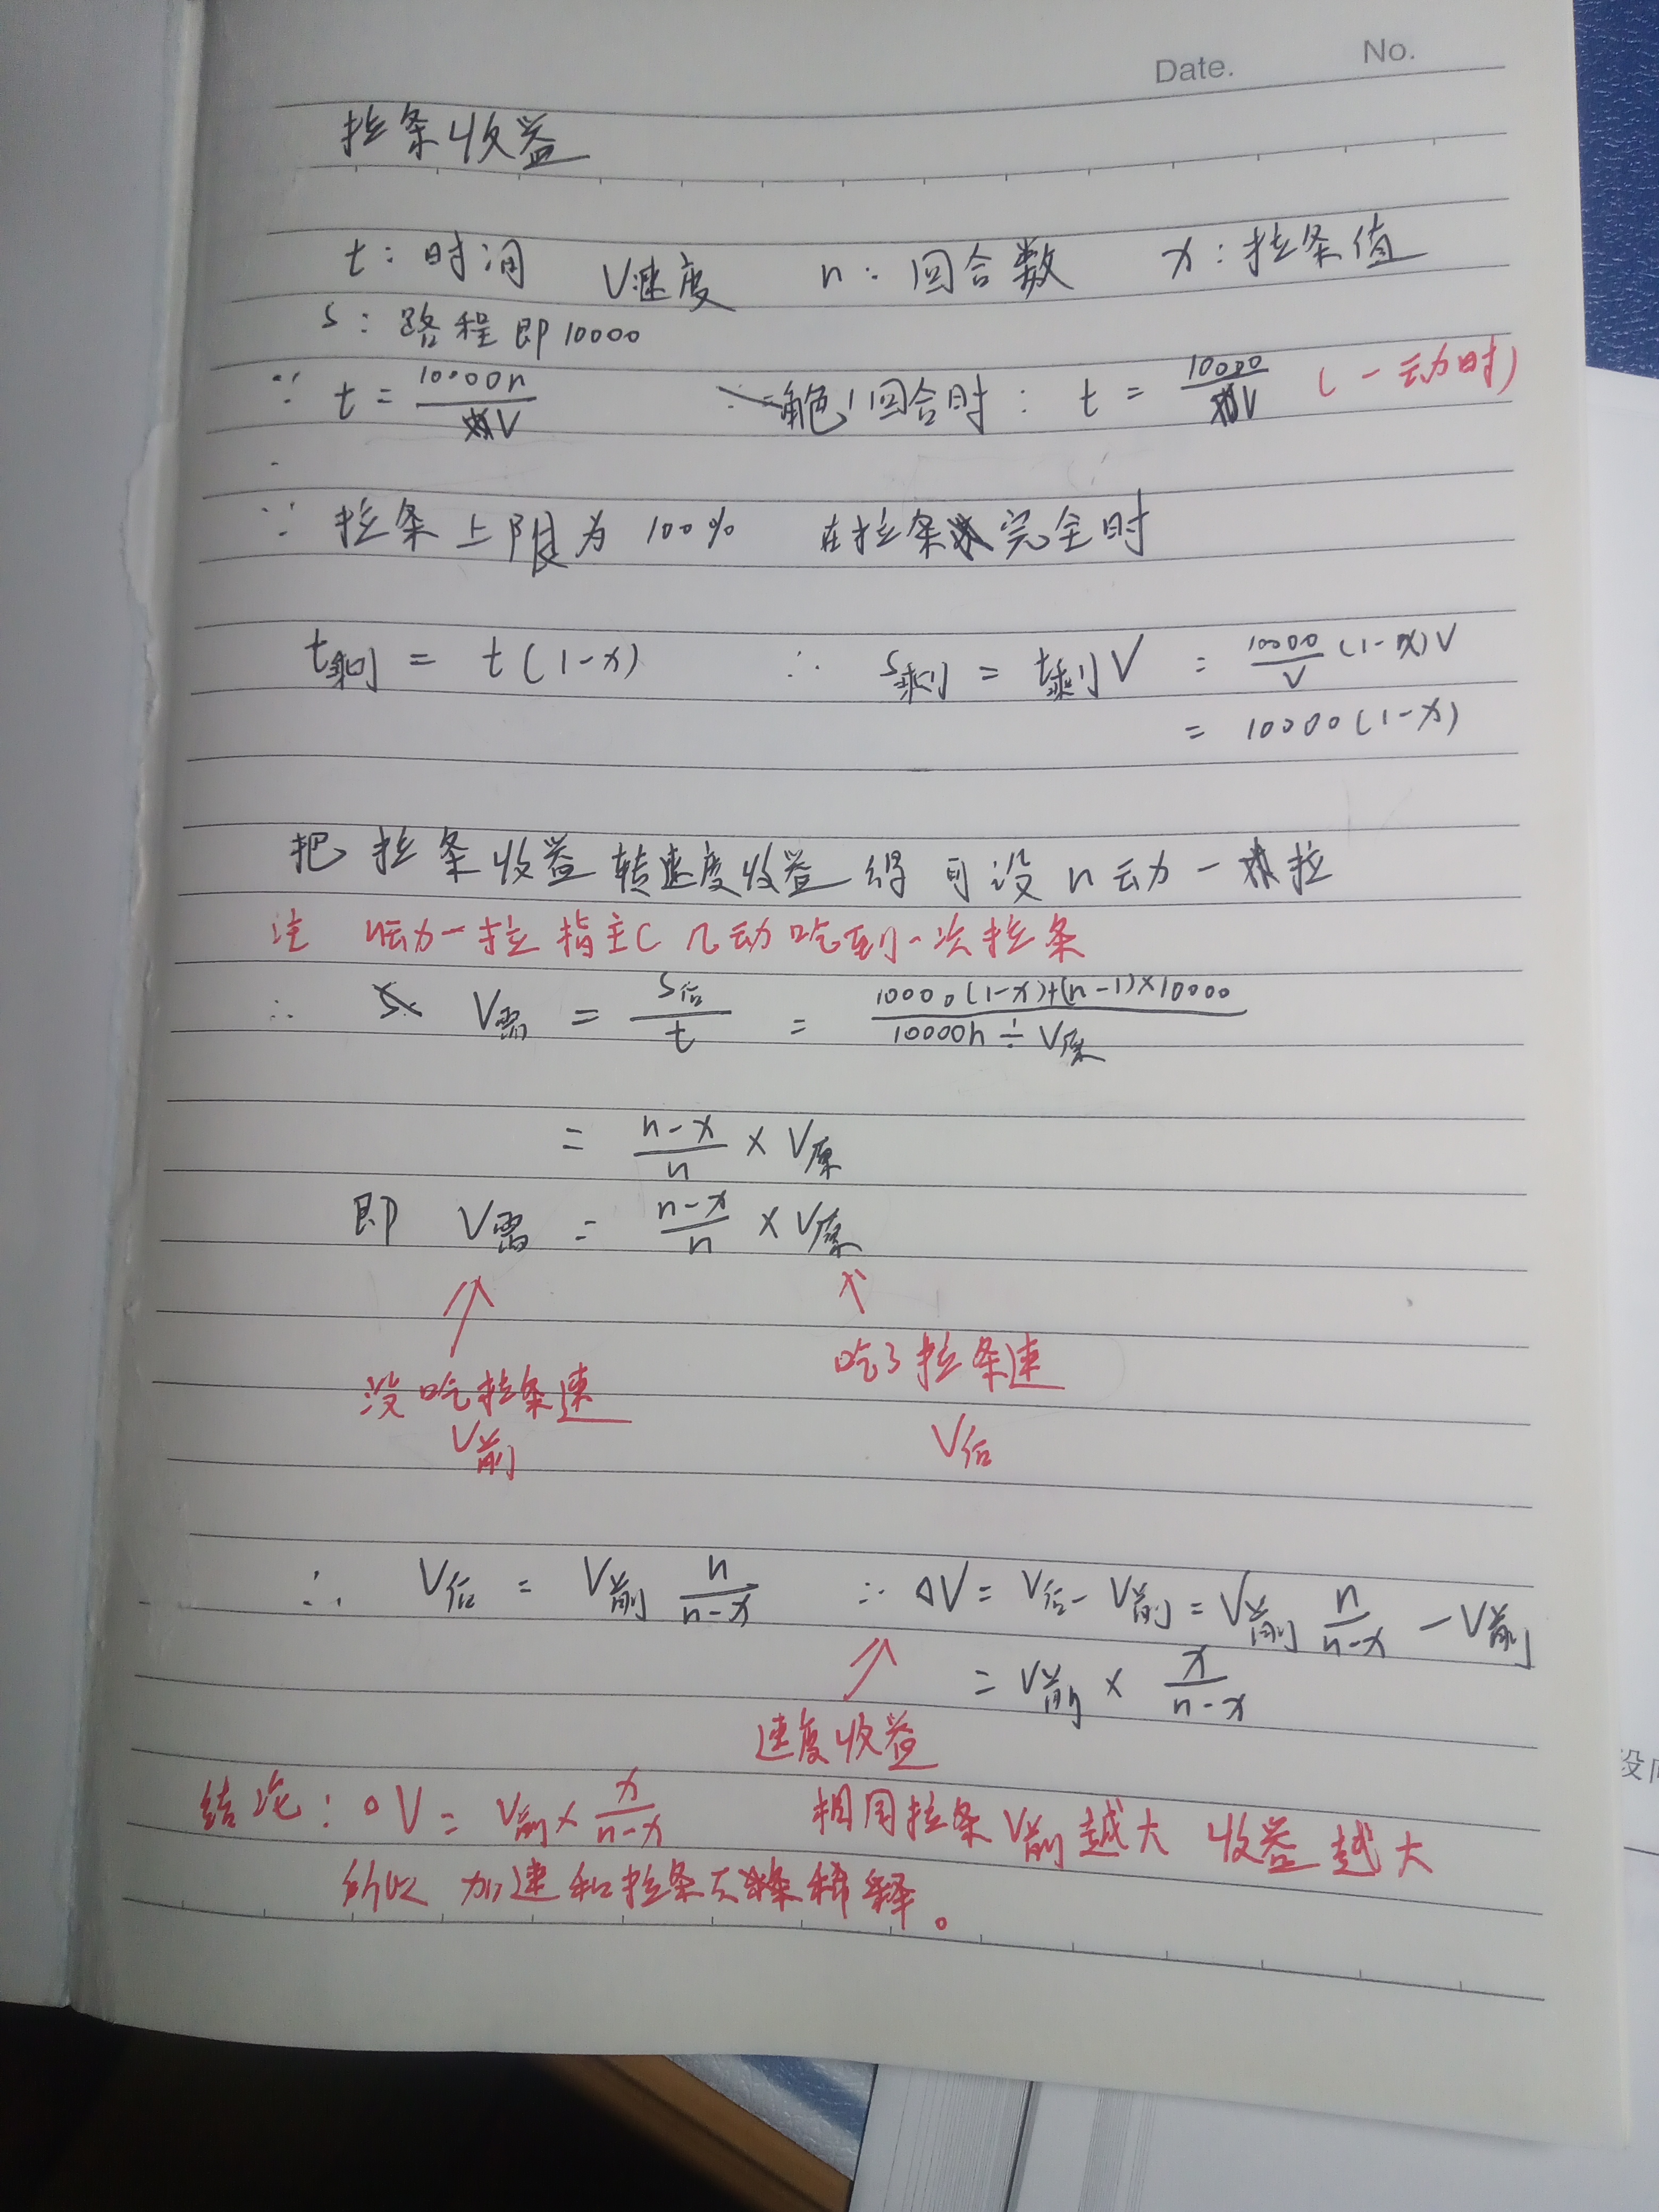 Date. No.
拉条收益
t：时间 V速度 n：回合数 x：拉条值
s：路程即10000
∵ t = 10000n / V ∴一角色1回合时：t = 10000 / V (一动时)
∵ 拉条上限为 100% 在拉条完全时
t剩 = t(1-x) ∴ s剩 = t剩V = 10000/V (1-x)V
= 10000(1-x)
把拉条收益转速度收益得可设n动一拉
注 n动一拉指主C几动吃到一次拉条
∴ V需 = s后/t = (10000(1-x)+(n-1)×10000) / (10000n÷V原)
= (n-x)/n × V原
即 V需 = (n-x)/n × V原
没吃拉条速 吃了拉条速
V前 V后
∴ V后 = V前 n/(n-x) ∴ΔV = V后-V前 = V前 n/(n-x) - V前
= V前 × x/(n-x)
速度收益
结论：△V = V前× x/(n-x) 相同拉条V前越大 收益越大
所以 加速和拉条不稀释。
设